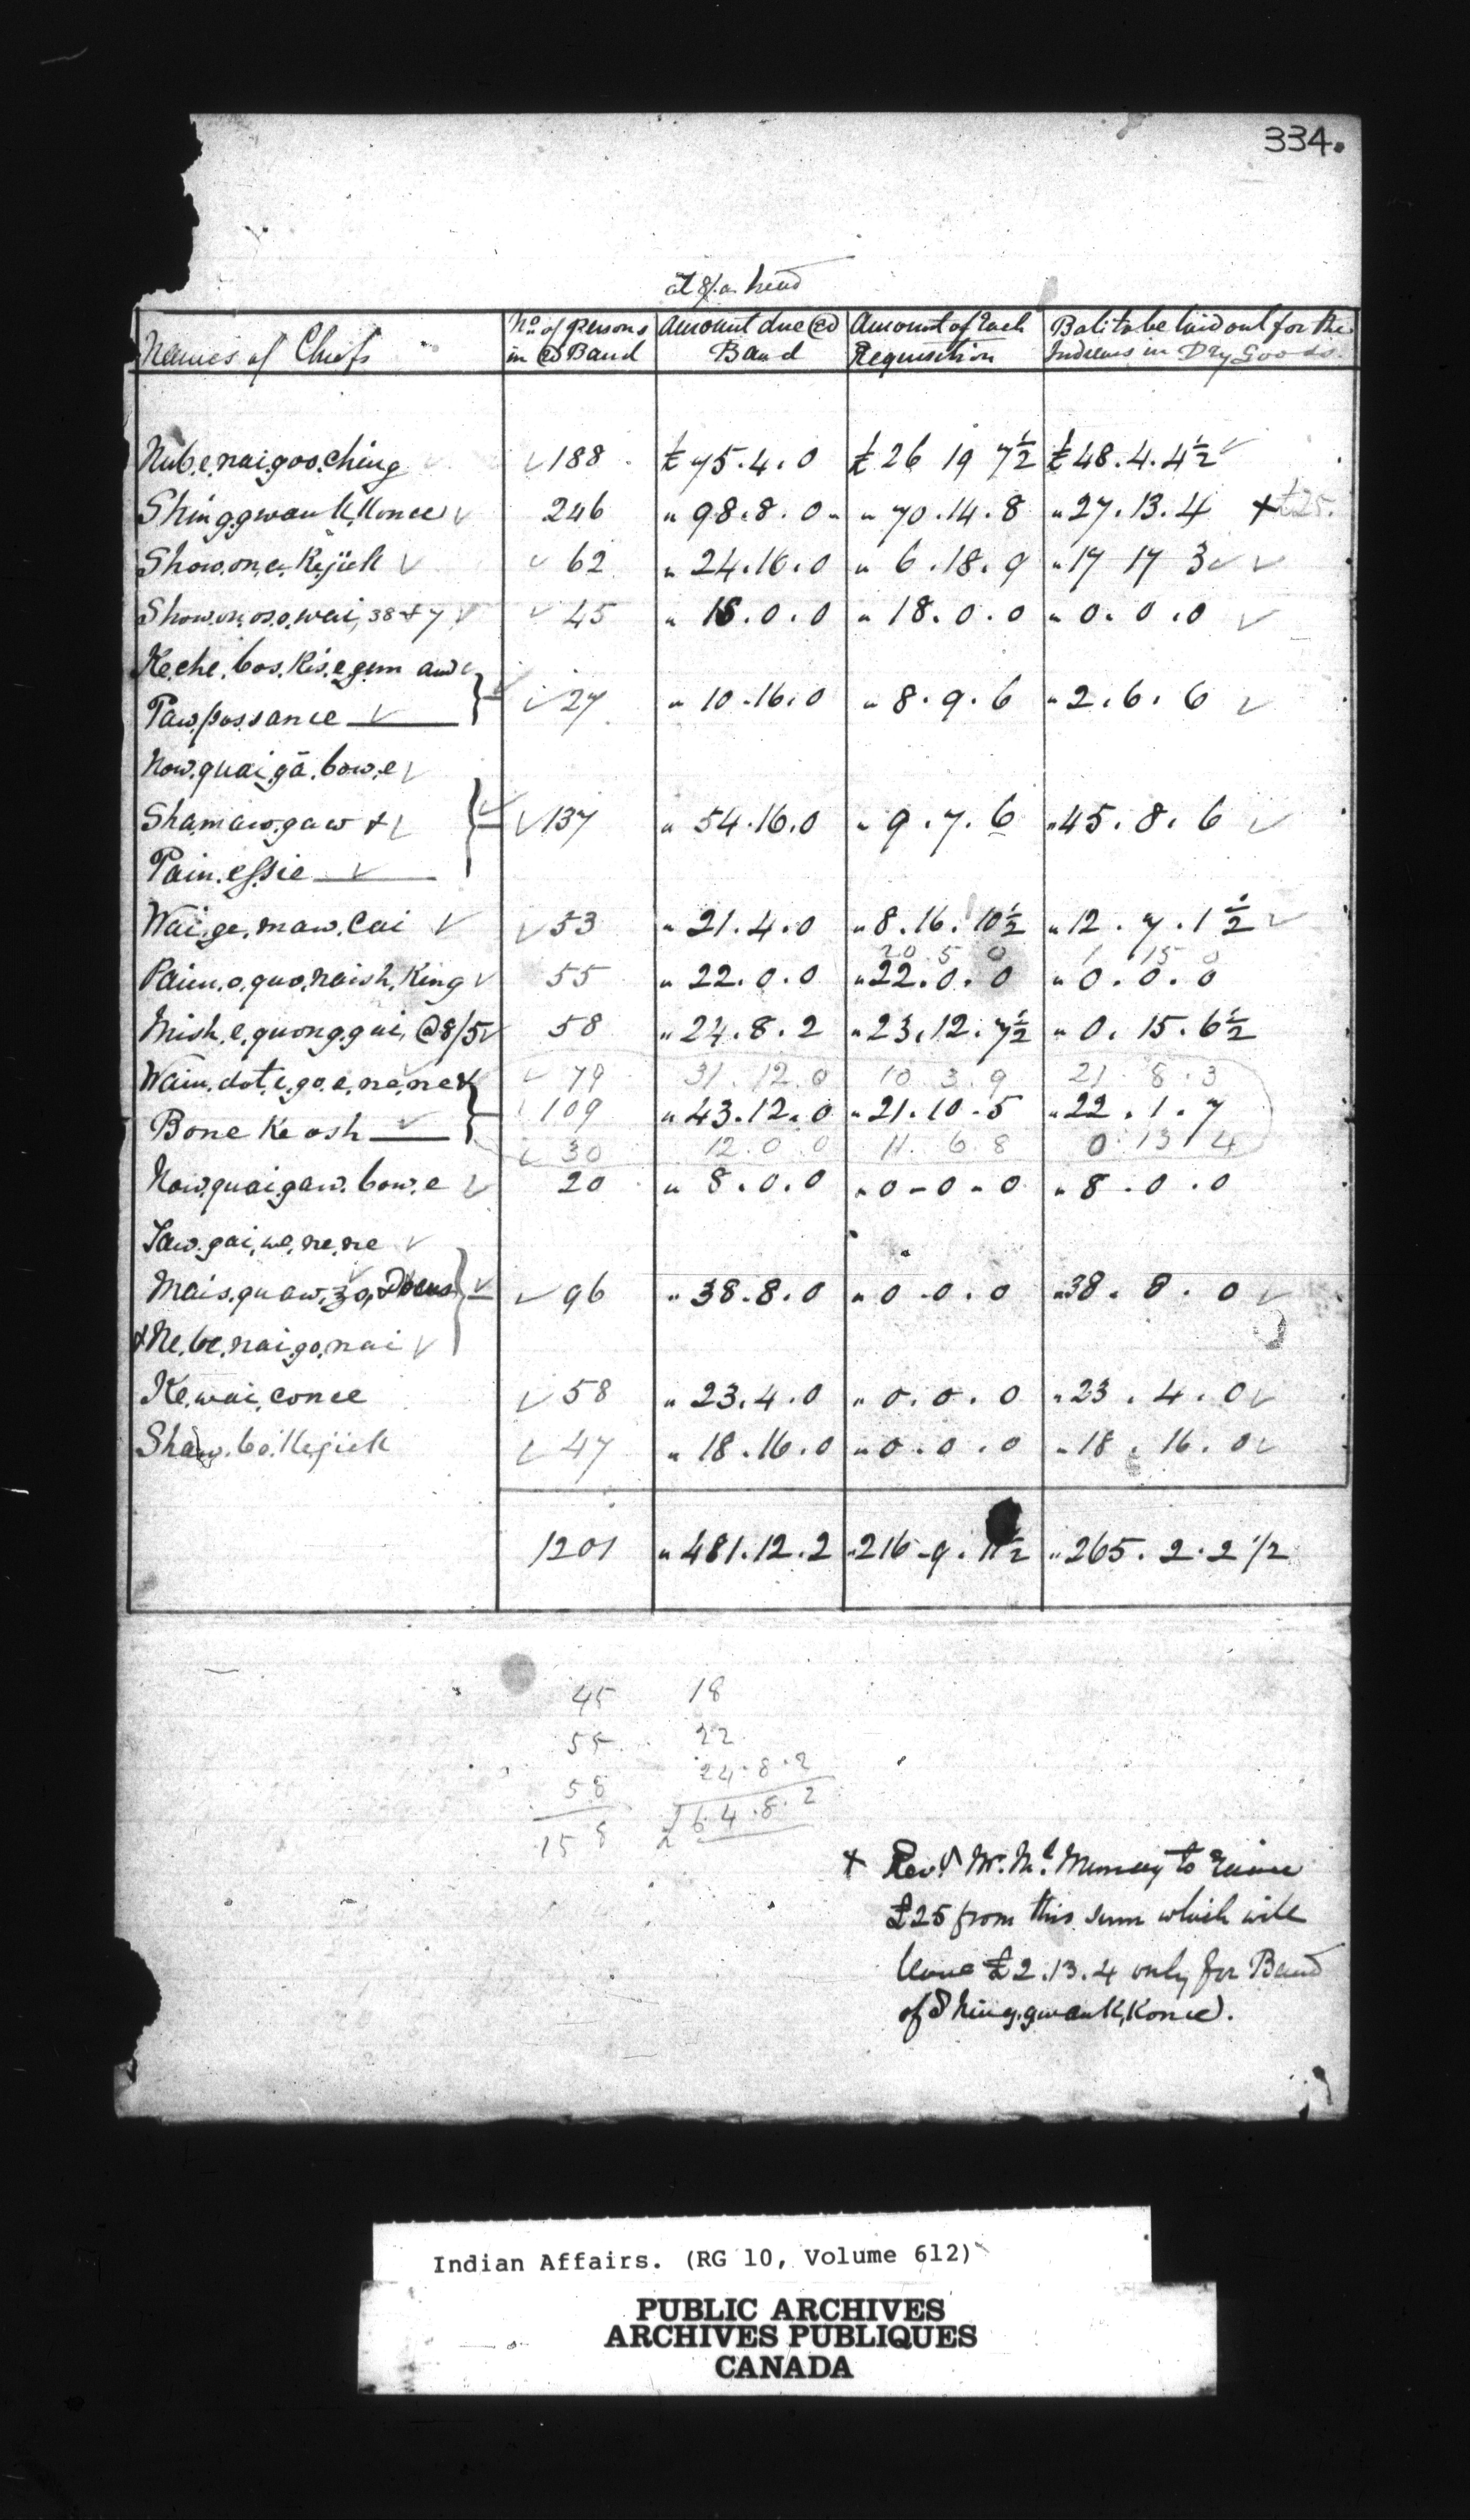 334.
at 8/ a head
Names of Chiefs | No. of Persons in @ Band | Amount due @ Band | Amount of Each Requisition | Bal: to be laid out for the Indians in Dry Goods.
Nub.e.nai.goo.ching ✓ 188 £75.4.0 £26 19 7½ £48.4.4½ ✓
Shing.gwauk,Konce ✓ 246 " 98.8.0 " 70.14.8 " 27.13.4 + £25.
Show.on,e.Kejick ✓ ✓ 62 " 24.16.0 " 6.18.9 " 17 17 3 ✓ ✓
Show.on,os,o,wai, 38 + 7 ✓ ✓ 45 " 18.0.0 " 18.0.0 " 0.0.0 ✓
Ke.che.bos.Kis.e.gun and
Paw.pos.sance ✓ ✓ 27 " 10.16.0 " 8.9.6 " 2.6.6 ✓
Now.quai.gā.bow.e ✓
Sha.maw.gaw + ✓ ✓ 137 " 54.16.0 " 9.7.6 " 45.8.6 ✓
Pain.essie ✓
Wai.ge.maw.Cai ✓ ✓ 53 " 21.4.0 " 8.16.10½ " 12.7.1½ ✓
20 5 0 1 15 0
Paim.o.quo.naish,King ✓ 55 " 22.0.0 " 22.0.0 " 0.0.0
Mish.e.quong.gai, @ 8/5 ✓ 58 " 24.8.2 " 23.12.7½ " 0.15.6½
✓ 79 31.12.0 10 3 9 21.8.3
Wain.dot.e.go.e.ne.ne &
109 " 43.12.0 " 21.10.5 " 22.1.7
Bone Ke osh ✓
✓ 30 12.0.0 11.6.8 0.13.4
Now.quai.gaw.bow.e ✓ 20 " 8.0.0 " 0-0-0 " 8.0.0
Taw.gai,we,ne,ne ✓
Mais.quaw.zo, Docus ✓ ✓ 96 " 38.8.0 " 0.0.0 " 38.8.0 ✓
& Ne.be.nai.go.nai ✓
Ke.wai.conce ✓ 58 " 23.4.0 " 0.0.0 " 23.4.0 ✓
Shaw.bo.Kejick ✓ 47 " 18.16.0 " 0.0.0 " 18.16.0 ✓
1201 " 481.12.2 " 216-9.11½ " 265.2.2 1/2
45 18
55 22
58 24.8.2
158 £64.8.2
+ Revd. Mr. Mc.Murray to
£25 from this sum which will
leave £2.13.4 only for Band
of Shing.gwauk,Konce).
Indian Affairs. (RG 10, Volume 612)
PUBLIC ARCHIVES
ARCHIVES PUBLIQUES
CANADA